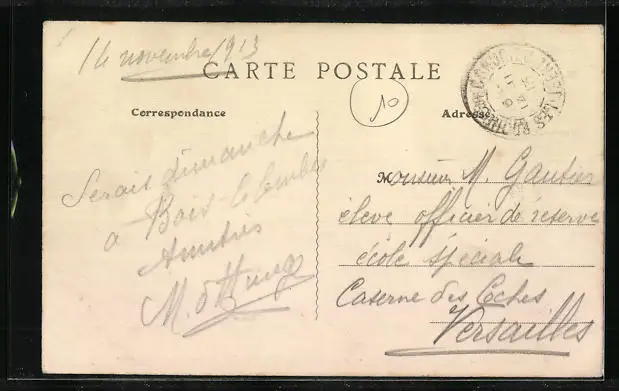 14 novembre 1913
CARTE POSTALE
10
Correspondance
Adresse
Serais dimanche
a Bois-Colombes
Amitiés
M.
Monsieur M. Gautier
élève officier de réserve
école spéciale
Caserne des Coches
Versailles